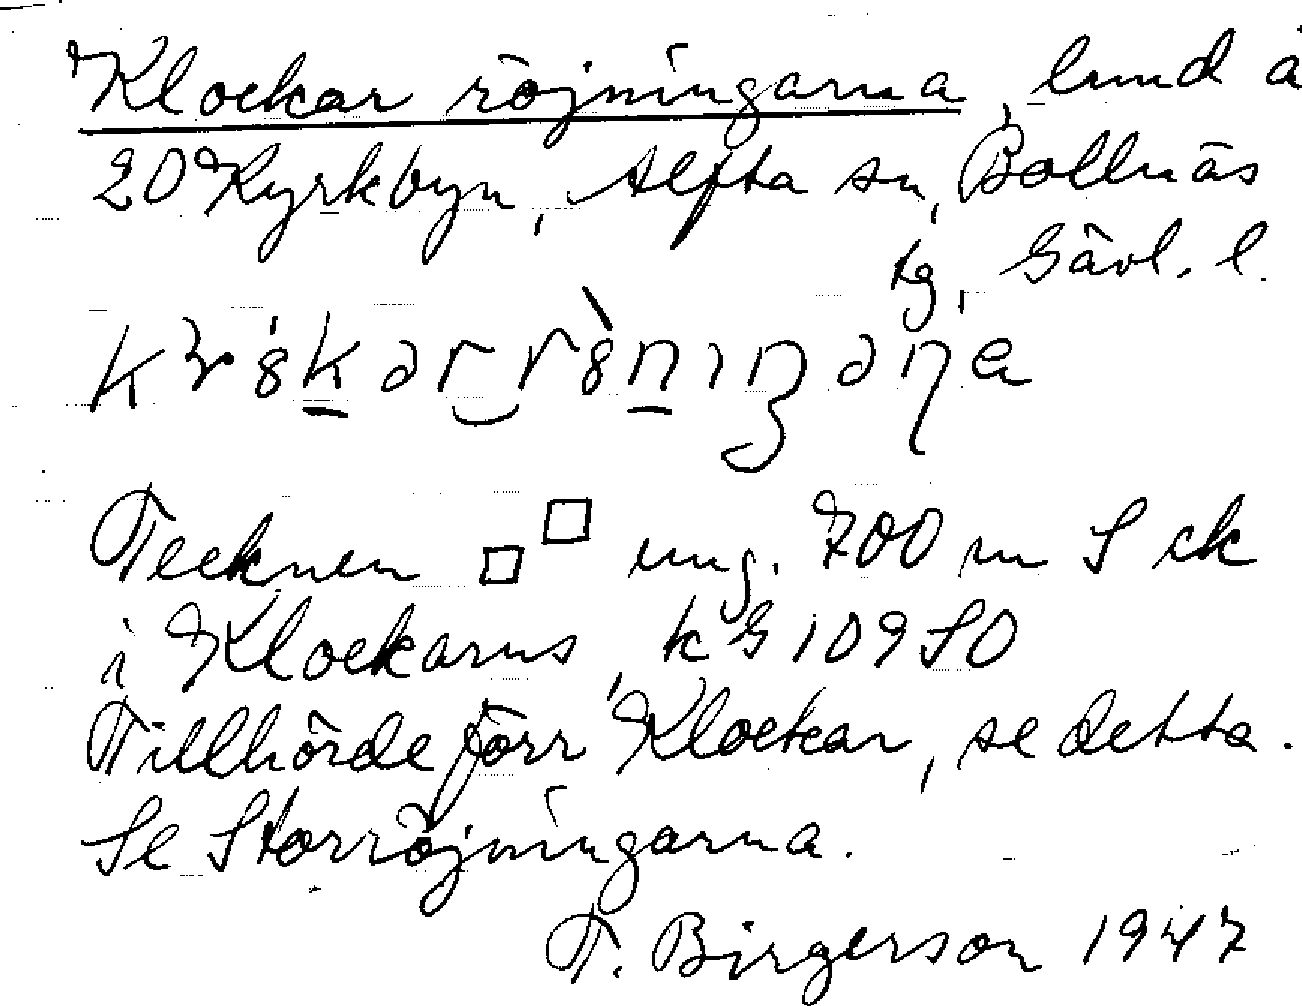 Klockar röjningarna, lund å
20 Kyrkbyn, Alfta sn, Bollnäs
tg, Gävl. l.
Tecknen □ □ ung. 700 m S ck
i Klockarns, k G 109 SO
Tillhörde förr Klockar, se detta.
Se Storröjningarna.
T. Birgerson 1947